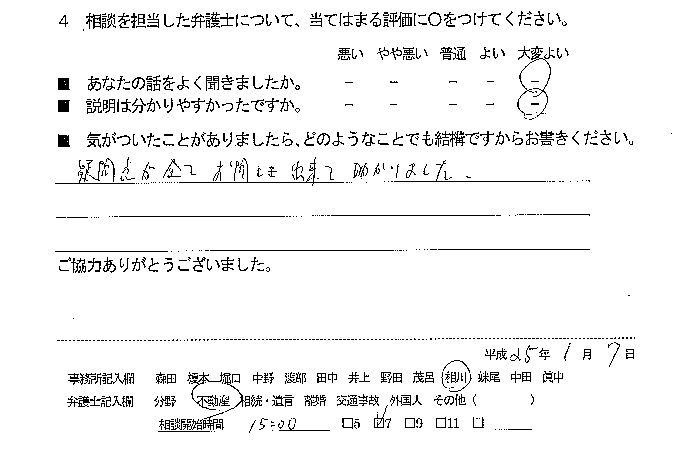 4 相談を担当した弁護士について、当てはまる評価に〇をつけてください。
悪い やや悪い 普通 よい 大変よい
■ あなたの話をよく聞きましたか。 － － － － －
■ 説明は分かりやすかったですか。 － － － － －
■ 気がついたことがありましたら、どのようなことでも結構ですからお書きください。
疑問点が全て お聞き出来て 助かりました。
ご協力ありがとうございました。
平成 25 年 1 月 7 日
事務所記入欄 森田 榎本 堀口 中野 渡部 田中 井上 野田 茂呂 相川 妹尾 中田 眞中
弁護士記入欄 分野 不動産 相続・遺言 離婚 交通事故 外国人 その他（ ）
相談開始時間 15:00 □5 ☑7 □9 □11 □